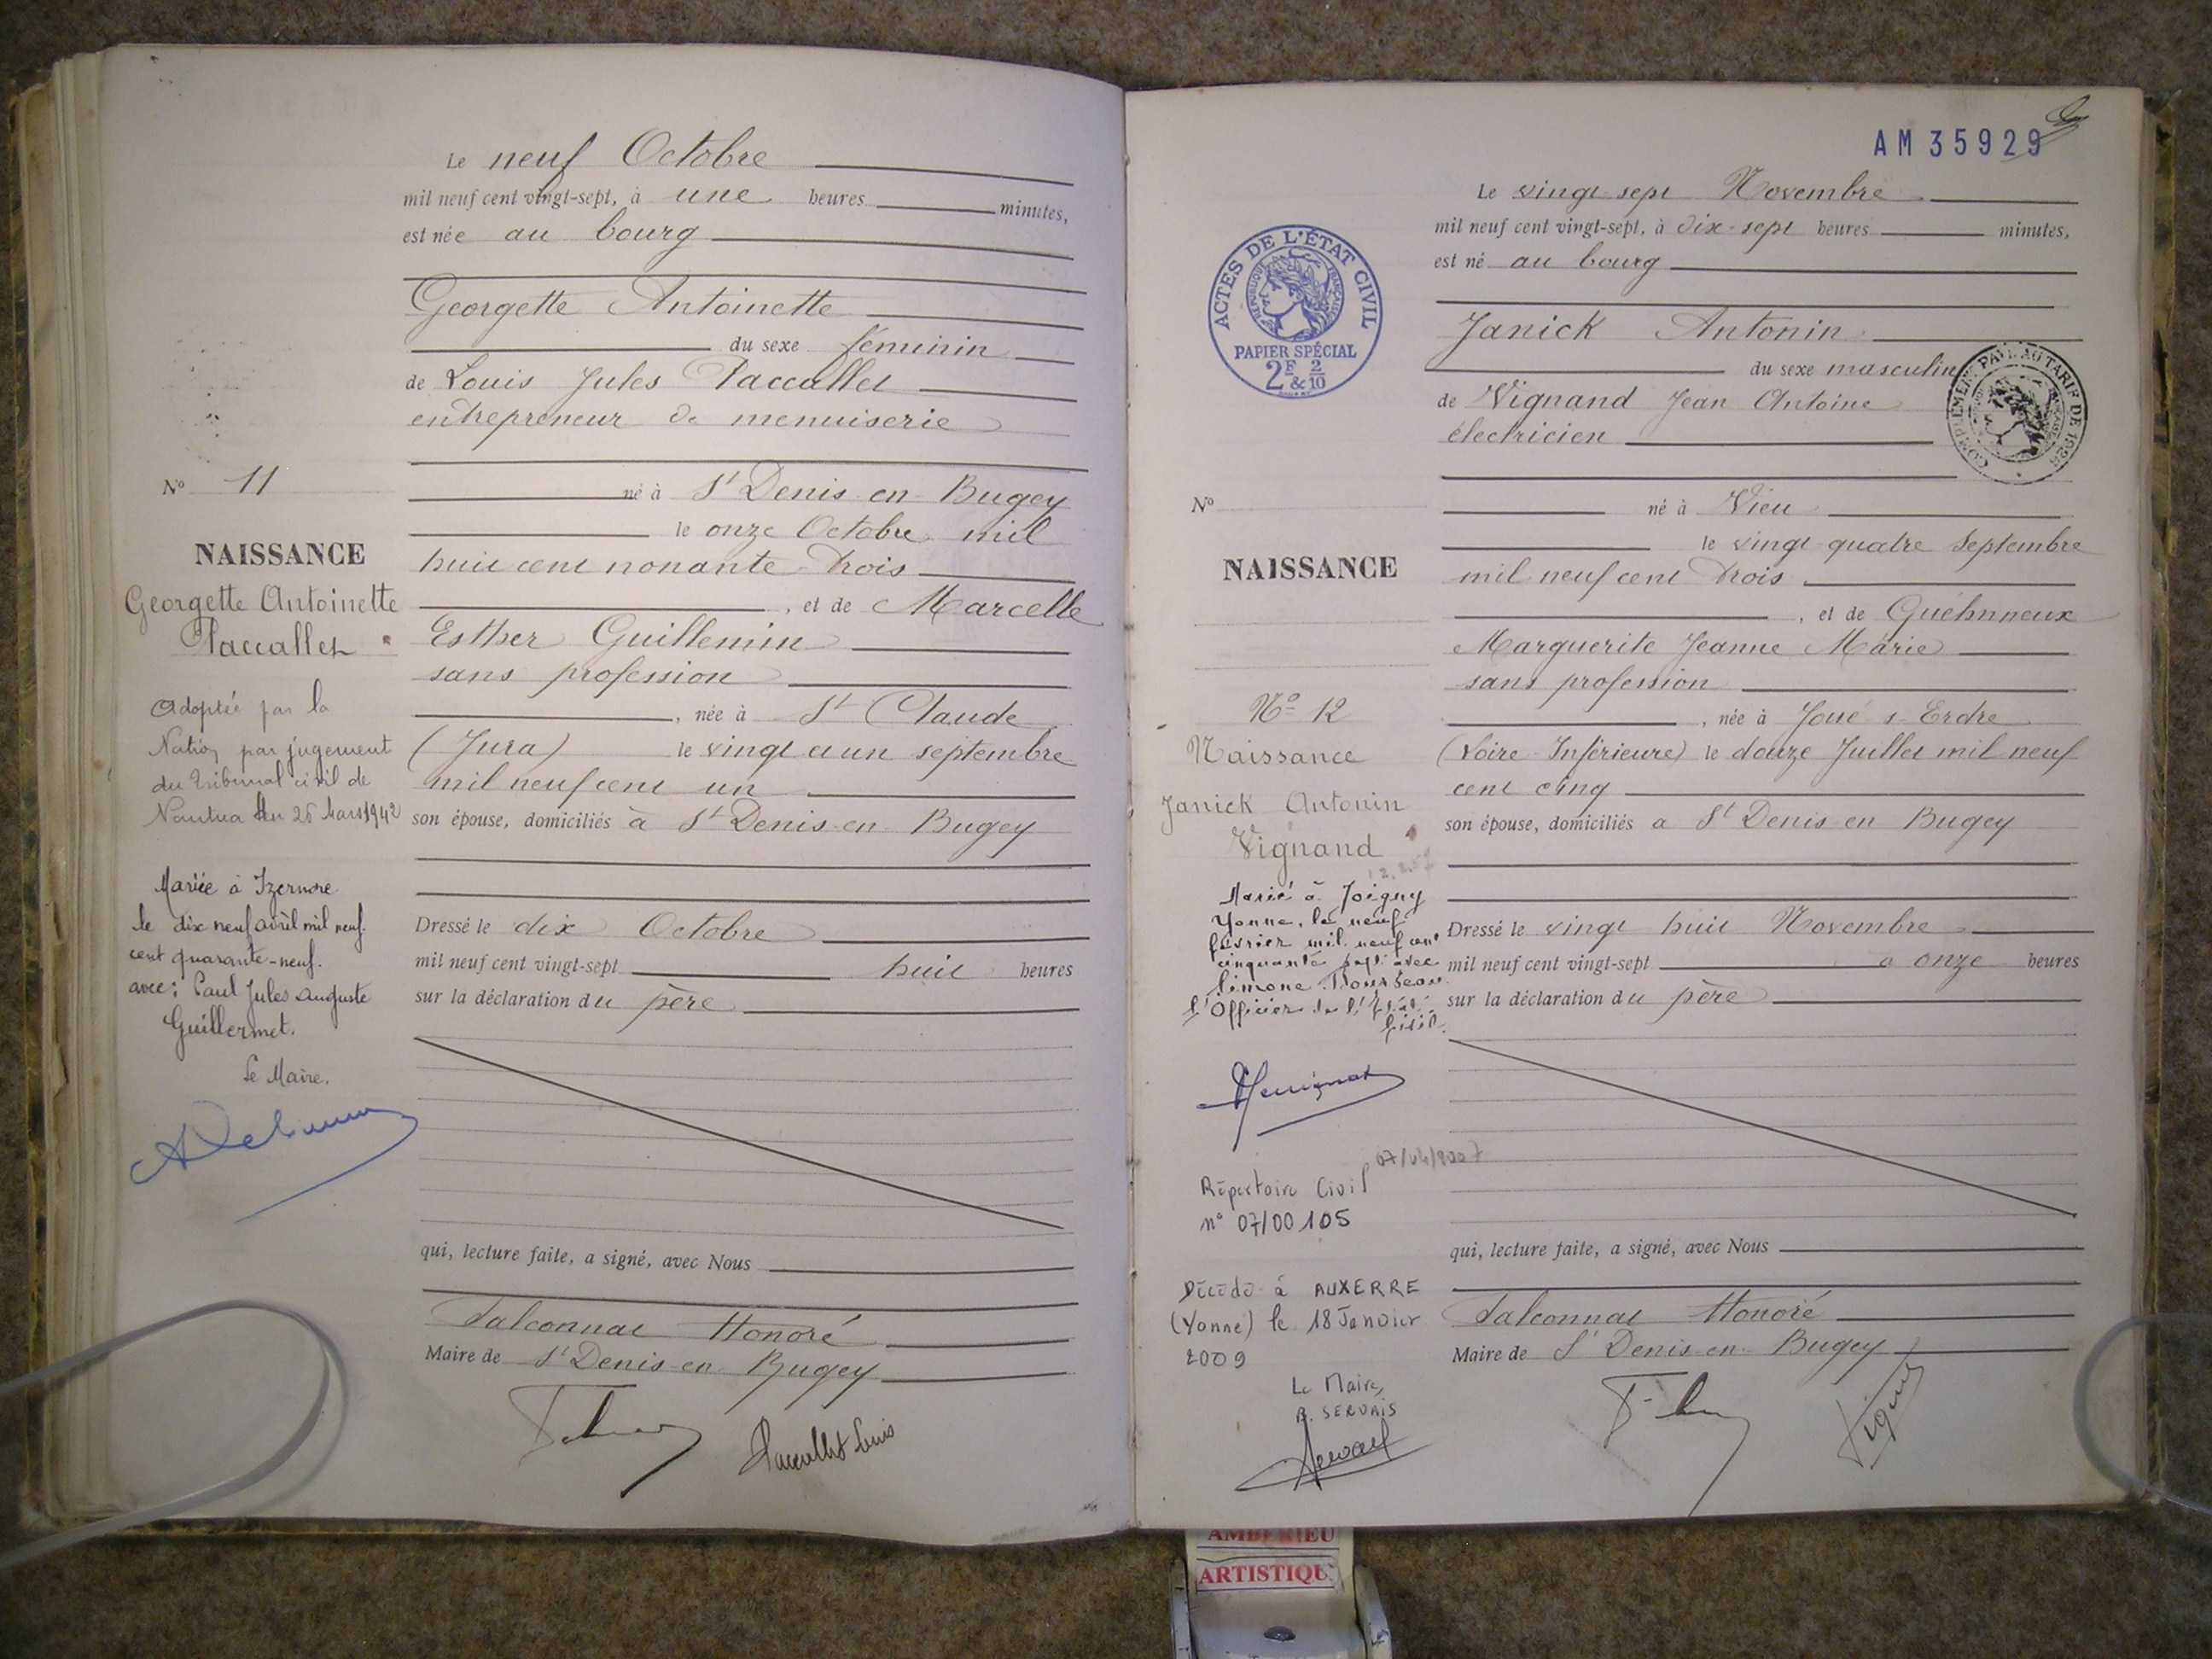 Le neuf Octobre
mil neuf cent vingt-sept, à une heures minutes,
est née au bourg
Georgette Antoinette
du sexe féminin
de Louis Jules Paccallet
entrepreneur de menuiserie
né à St Denis en Bugey
le onze Octobre mil
huit cent nonante trois
, et de Marcelle
Esther Guillemin
sans profession
, née à St Claude
(Jura) le vingt et un septembre
mil neuf cent un
son épouse, domiciliés à St Denis en Bugey
Dressé le dix Octobre
mil neuf cent vingt-sept huit heures
sur la déclaration du père
qui, lecture faite, a signé, avec Nous
Falconnat Honoré
Maire de St Denis en Bugey
Paccallet Louis
No 11
NAISSANCE
Georgette Antoinette
Paccallet
Adoptée par la
Nation par jugement
du Tribunal civil de
Nantua du 26 Mars 1942
Mariée à Izernore
le dix neuf avril mil neuf
cent quarante-neuf.
avec : Paul Jules Auguste
Guillermet.
Le Maire.
AM 35929
Le vingt sept Novembre
mil neuf cent vingt-sept, à dix-sept heures minutes,
est né au bourg
Janick Antonin
du sexe masculin
de Vignand Jean Antoine
électricien
né à Vieu
le vingt quatre Septembre
mil neuf cent trois
, et de Guéhnneux
Marguerite Jeanne Marie
sans profession
, née à Joué s Erdre
(Loire Inférieure) le douze Juillet mil neuf
cent cinq
son épouse, domiciliés a St Denis en Bugey
Dressé le vingt huit Novembre
mil neuf cent vingt-sept a onze heures
sur la déclaration du père
qui, lecture faite, a signé, avec Nous
Falconnat Honoré
Maire de St Denis en Bugey
ACTES DE L'ÉTAT CIVIL
RÉPUBLIQUE FRANÇAISE
PAPIER SPÉCIAL
2F & 2/10
COMPLEMENT PAYÉ AU TARIF DE 1926
No
NAISSANCE
No 12
Naissance
Janick Antonin
Vignand
Marié à Joigny
Yonne, le neuf
février mil neuf cent
cinquante sept avec
Simone
l'Officier de l'État
Civil.
Répertoire Civil
n° 07/00105
Décédé à AUXERRE
(Yonne) le 18 Janvier
2009
Le Maire,
SERVAIS
AMBERIEU
ARTISTIQU